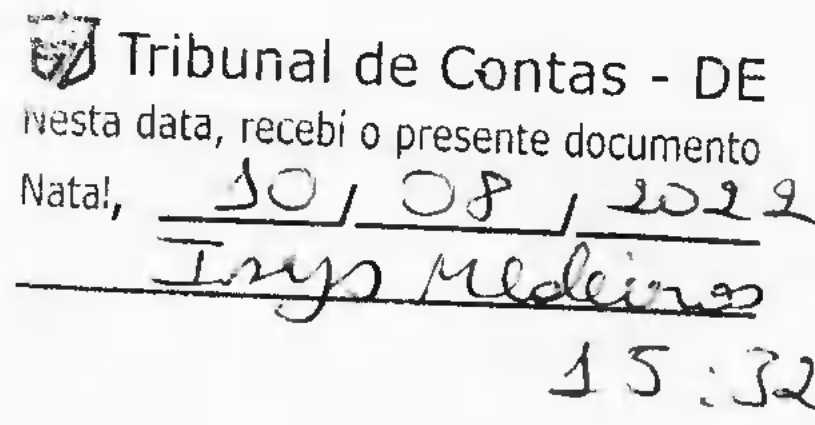 Tribunal de Contas - DE
Nesta data, recebi o presente documento
Natal, 10 / 08 / 2022
Isys Medeiros
15:32